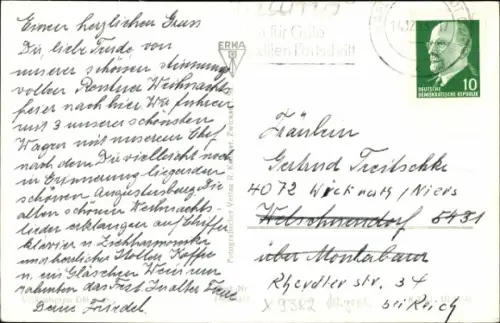 Einen herzlichen Gruss
Dir liebe Trude von
unserer schönen stimmungs
vollen Rentner Weihnachts
feier nach hier. Wir fuhren
mit 3 unserer schönsten
Wagen mit unserem Chef
nach dem Dir vielleicht noch
in Erinnerung liegenden
schönen Augustusburg. Die
alten schönen Weihnachts-
lieder erklangen auf
klavier u. Ziehharmonika
und herrlicher Stollen Kaffee
u. ein Gläschen Wein um
rahmten das Fest. In alter Treue
Deine Friedel.
ERKA
Fotografischer Verlag R. Zwickau
für Güte
Fortschritt
14.12.
DEUTSCHE
DEMOKRATISCHE REPUBLIK
10
Fräulein
Gertrud Treitschke
4072 Wickrath / Niers
Welschneudorf 5431
über Montabaur
Rheydter str. 34
bei Reich
X 9382